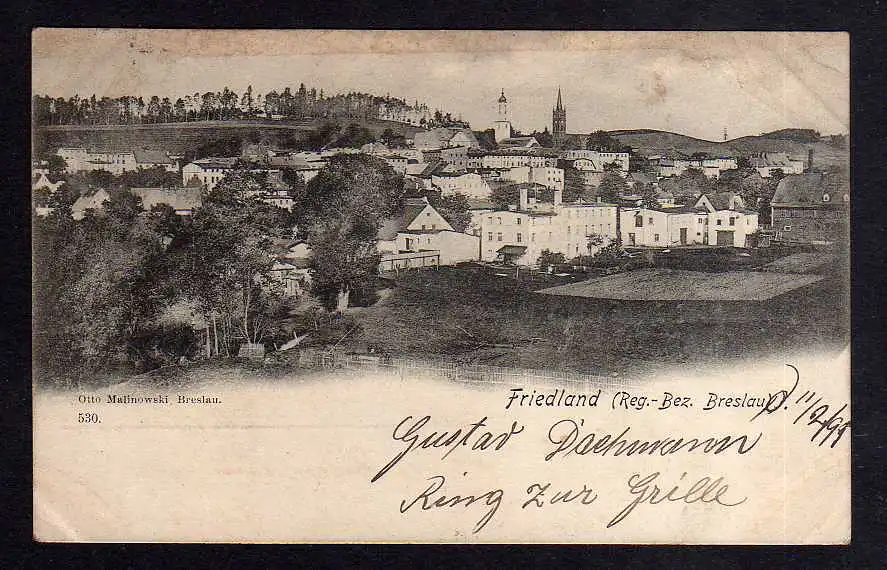 Otto Malinowski, Breslau.
530.
Friedland (Reg.-Bez. Breslau).
11/2/98
Gustav Dachmann
Ring zur Grille